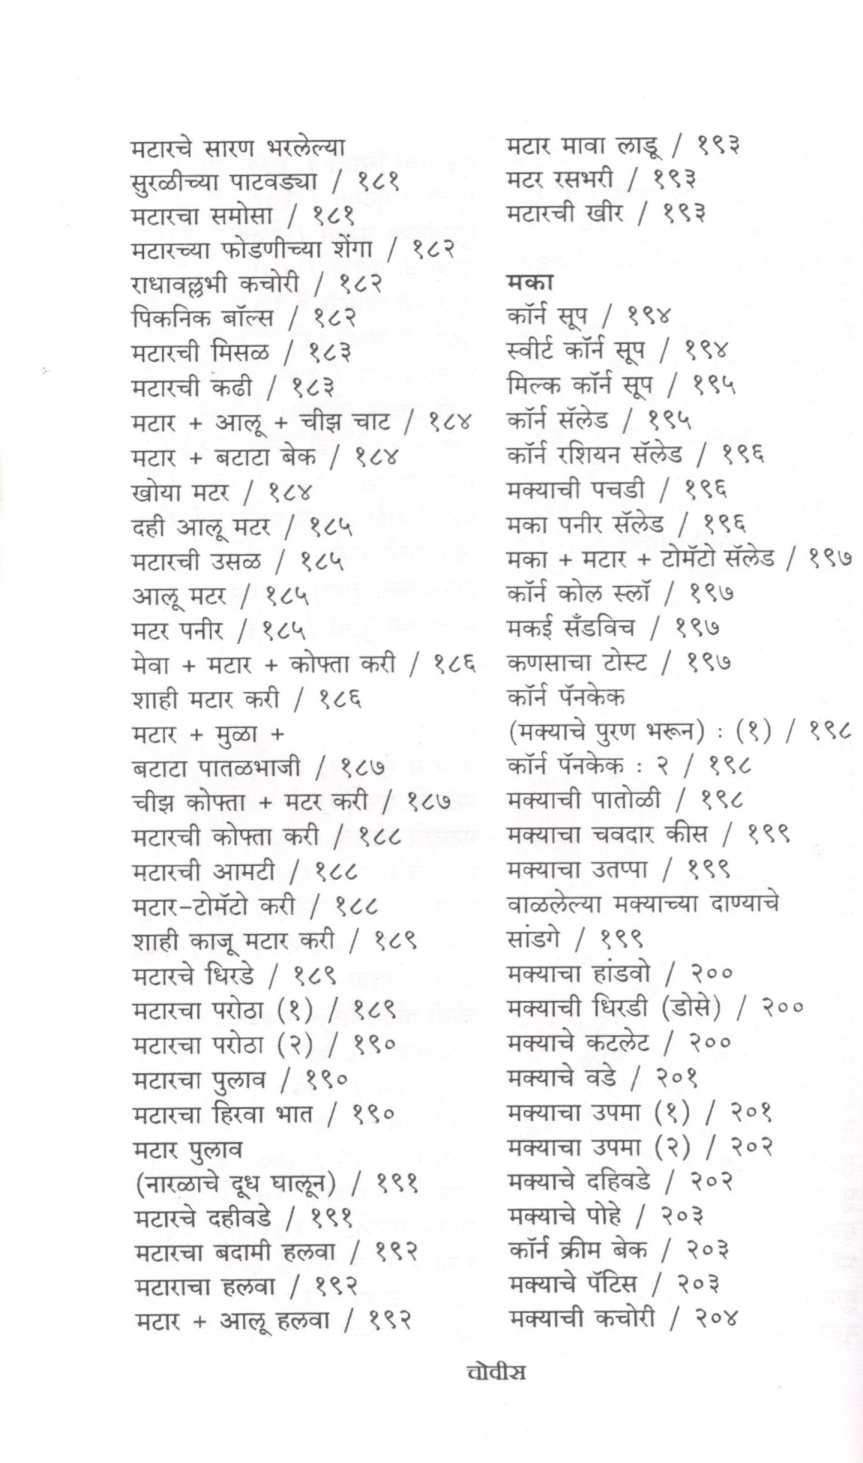 मटारचे सारण भरलेल्या
सुरळीच्या पाटवड्या / १८१
मटारचा समोसा / १८१
मटारच्या फोडणीच्या शेंगा / १८२
राधावल्लभी कचोरी / १८२
पिकनिक बॉल्स / १८२
मटारची मिसळ / १८३
मटारची कढी / १८३
मटार + आलू + चीझ चाट / १८४
मटार + बटाटा बेक / १८४
खोया मटर / १८४
दही आलू मटर / १८५
मटारची उसळ / १८५
आलू मटर / १८५
मटर पनीर / १८५
मेवा + मटार + कोफ्ता करी / १८६
शाही मटार करी / १८६
मटार + मुळा +
बटाटा पातळभाजी / १८७
चीझ कोफ्ता + मटर करी / १८७
मटारची कोफ्ता करी / १८८
मटारची आमटी / १८८
मटार-टोमॅटो करी / १८८
शाही काजू मटार करी / १८९
मटारचे धिरडे / १८९
मटारचा परोठा (१) / १८९
मटारचा परोठा (२) / १९०
मटारचा पुलाव / १९०
मटारचा हिरवा भात / १९०
मटार पुलाव
(नारळाचे दूध घालून) / १९१
मटारचे दहीवडे / १९१
मटारचा बदामी हलवा / १९२
मटाराचा हलवा / १९२
मटार + आलू हलवा / १९२
मटार मावा लाडू / १९३
मटर रसभरी / १९३
मटारची खीर / १९३
मका
कॉर्न सूप / १९४
स्वीर्ट कॉर्न सूप / १९४
मिल्क कॉर्न सूप / १९५
कॉर्न सॅलेड / १९५
कॉर्न रशियन सॅलेड / १९६
मक्याची पचडी / १९६
मका पनीर सॅलेड / १९६
मका + मटार + टोमॅटो सॅलेड / १९७
कॉर्न कोल स्लॉ / १९७
मकई सँडविच / १९७
कणसाचा टोस्ट / १९७
कॉर्न पॅनकेक
(मक्याचे पुरण भरून) : (१) / १९८
कॉर्न पॅनकेक : २ / १९८
मक्याची पातोळी / १९८
मक्याचा चवदार कीस / १९९
मक्याचा उतप्पा / १९९
वाळलेल्या मक्याच्या दाण्याचे
सांडगे / १९९
मक्याचा हांडवो / २००
मक्याची धिरडी (डोसे) / २००
मक्याचे कटलेट / २००
मक्याचे वडे / २०१
मक्याचा उपमा (१) / २०१
मक्याचा उपमा (२) / २०२
मक्याचे दहिवडे / २०२
मक्याचे पोहे / २०३
कॉर्न क्रीम बेक / २०३
मक्याचे पॅटिस / २०३
मक्याची कचोरी / २०४
चोवीस